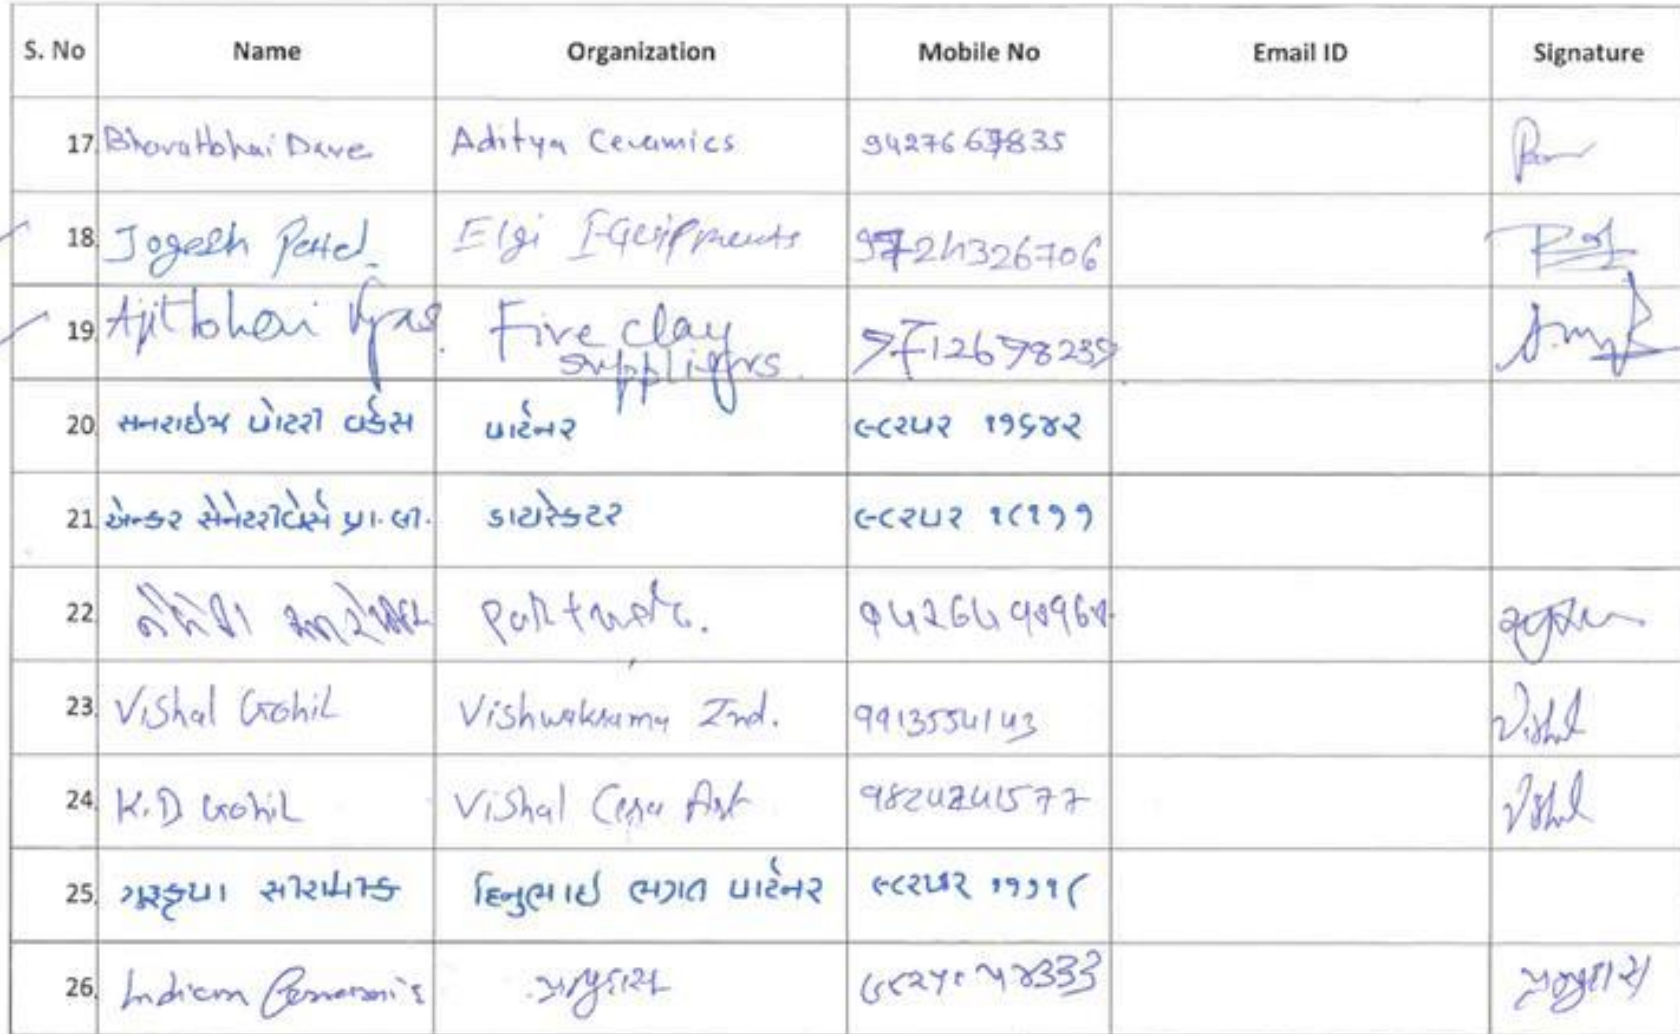 S. No Name Organization Mobile No Email ID Signature
17. Bharatbhai Dave Aditya Ceramics 9427667835
18. Jogesh Patel Elgi Equipments 9724326706
19. Ajitbhai Vyas Five clay
suppliers. 9712698239
20. સનરાઈઝ પોટરી વર્કસ પાર્ટનર ૯૮૨૫૨ ૧૧૬૪૨
21. એન્કર સેનેટરીવેર્સ પ્રા. લી. ડાયરેક્ટર ૯૮૨૫૨ ૧૮૧૧૧
22.
23. Vishal Gohil Vishwakrama Ind. 9913554143 Vishal
24. K.D Gohil Vishal Cera Art 9824241577 Vishal
25. ગુરુકૃપા સીરામીક હિનુભાઈ ભગત પાર્ટનર ૯૮૨૫૨ ૧૧૧૧૮
26. Indian